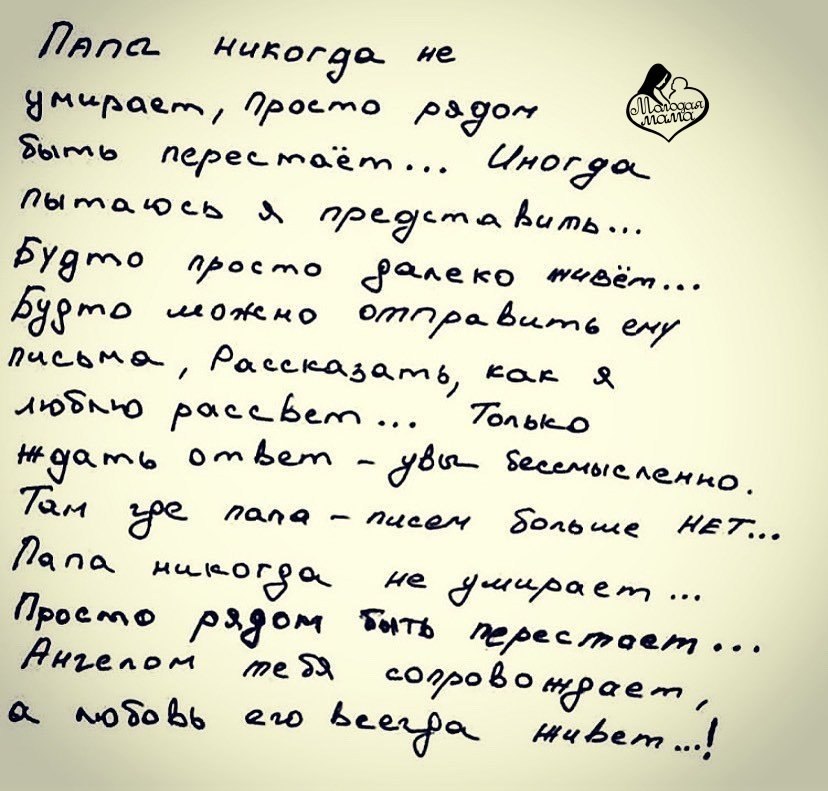 Папа никогда не
умирает, просто рядом
Молодая
мама
быть перестаёт... Иногда
пытаюсь я представить...
Будто просто далеко живём...
Будто можно отправить ему
письма, Рассказать, как я
люблю рассвет... Только
ждать ответ - увы бессмысленно.
Там где папа - писем больше НЕТ...
Папа никогда не умирает...
Просто рядом быть перестает...
Ангелом тебя сопровождает,
а любовь его всегда живет...!